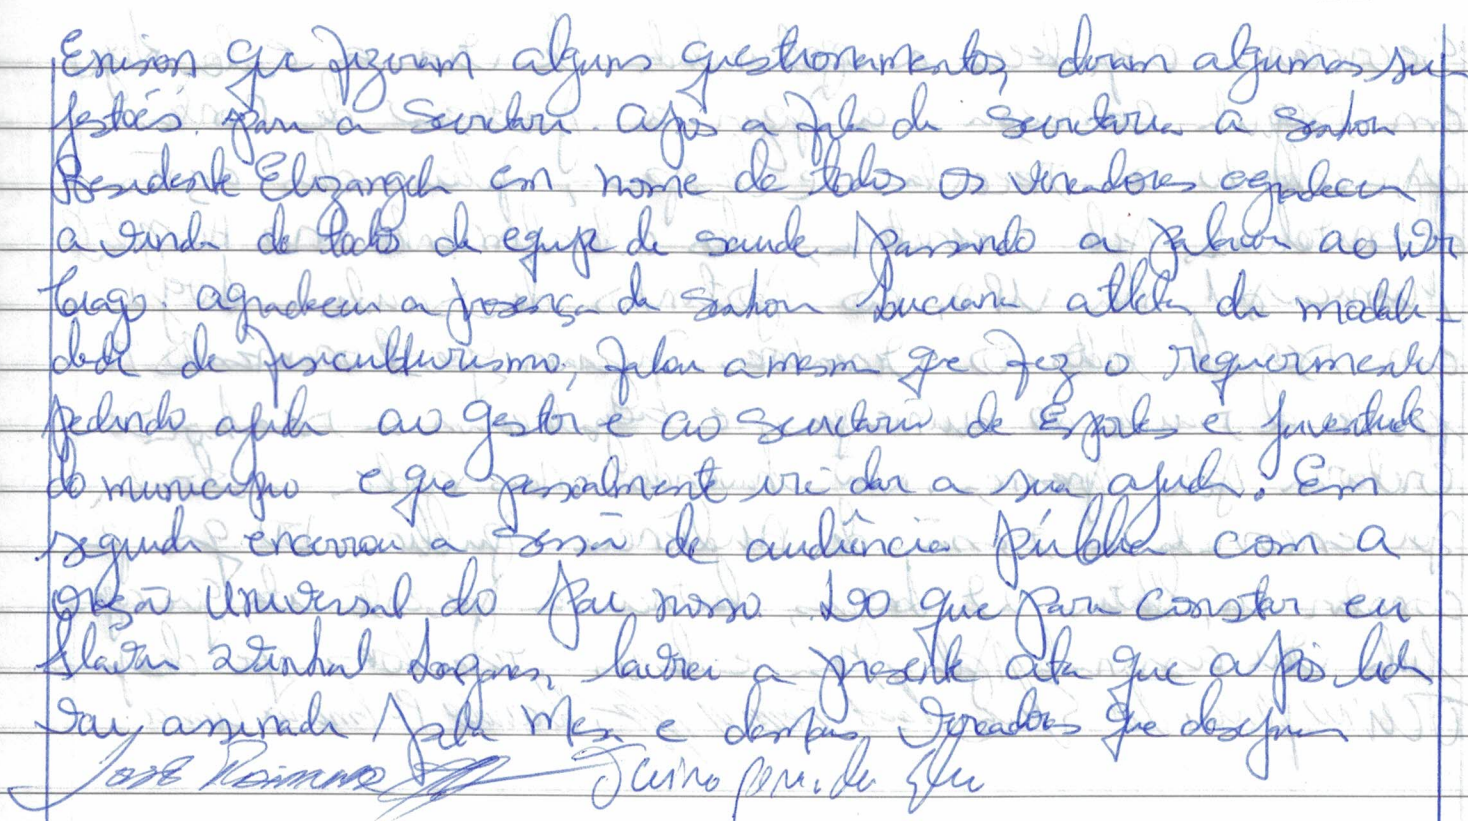 que fizeram alguns questionamentos, deram algumas su-
gestões para a Secretaria. Após a fala da Secretaria a Senhora
Presidente Elizangela em nome de todos os vereadores agradeceu
a vinda de todos da equipe de saude passando a palavra ao
agradeceu a presença da Senhora Luciana atleta da modali-
dade de fisiculturismo, falou a mesma que fez o requerimento
pedindo ajuda ao gestor e ao Secretario de Esportes e Juventude
do municipio e que pessoalmente irá dar a sua ajuda. Em
seguida encerrou a sessão de audiência pública com a
oração Universal do Pai nosso. Do que para constar eu
lavrei a presente ata que após lida
vai assinada pela Mesa e demais vereadores que desejarem
José Raimundo